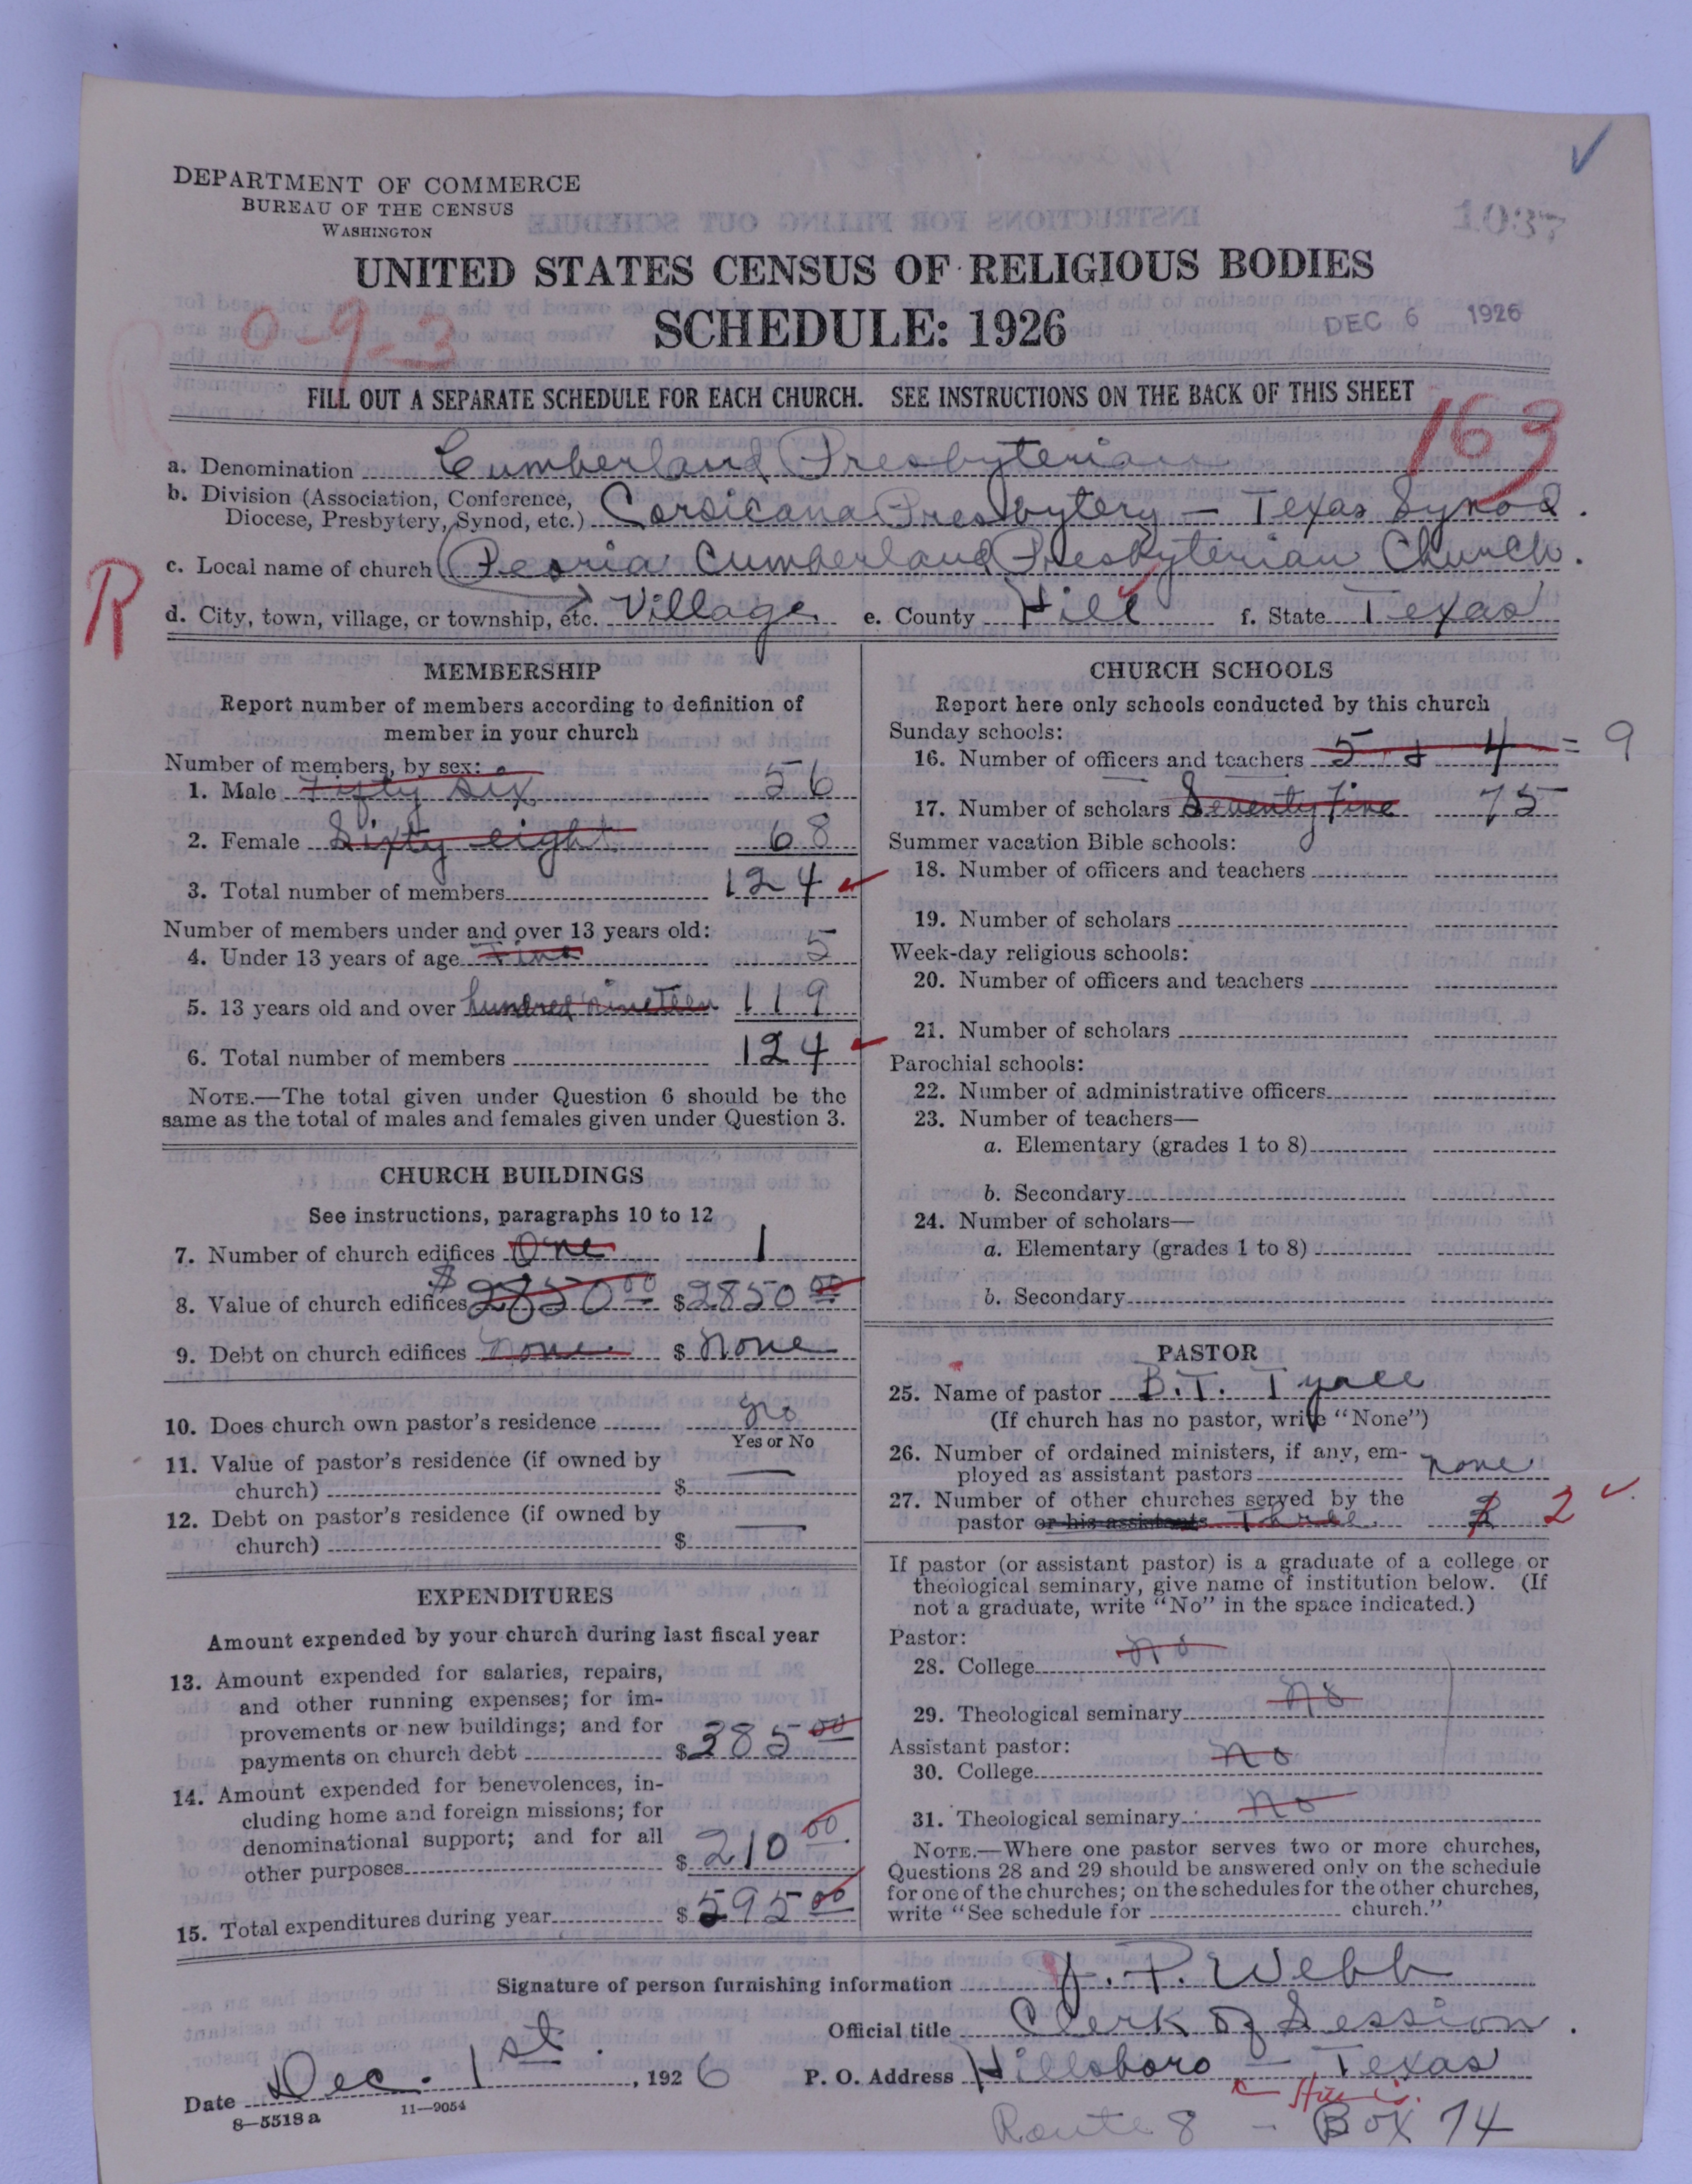 DEPARTMENT OF COMMERCE
BUREAU OF THE CENSUS
WASHINGTON
1037
UNITED STATES CENSUS OF RELIGIOUS BODIES
SCHEDULE: 1926
DEC 6 1926
0-9-3
R
FILL OUT A SEPARATE SCHEDULE FOR EACH CHURCH. SEE INSTRUCTIONS ON THE BACK OF THIS SHEET
163
a. Denomination Cumberland Presbyterian
b. Division (Association, Conference,
Diocese, Presbytery, Synod, etc.) Corsicana Presbytery – Texas Synod.
c. Local name of church Peoria Cumberland Presbyterian Church.
R
d. City, town, village, or township, etc. Village e. County Hill f. State Texas
MEMBERSHIP
Report number of members according to definition of
member in your church
Number of members, by sex:
1. Male Fifty Six 56
2. Female Sixty eight 68
3. Total number of members 124
Number of members under and over 13 years old:
4. Under 13 years of age Five 5
5. 13 years old and over hundred nineteen 119
6. Total number of members 124
NOTE.—The total given under Question 6 should be the
same as the total of males and females given under Question 3.
CHURCH BUILDINGS
See instructions, paragraphs 10 to 12
7. Number of church edifices One 1
8. Value of church edifices $2850 00 $2850 00
9. Debt on church edifices none $ none
10. Does church own pastor's residence no
Yes or No
11. Value of pastor's residence (if owned by
church) $ —
12. Debt on pastor's residence (if owned by
church) $ —
EXPENDITURES
Amount expended by your church during last fiscal year
13. Amount expended for salaries, repairs,
and other running expenses; for im-
provements or new buildings; and for
payments on church debt $385 00
14. Amount expended for benevolences, in-
cluding home and foreign missions; for
denominational support; and for all
other purposes $210 00
15. Total expenditures during year $595 00
CHURCH SCHOOLS
Report here only schools conducted by this church
Sunday schools:
16. Number of officers and teachers 5 & 4 = 9
17. Number of scholars Seventy Five 75
Summer vacation Bible schools:
18. Number of officers and teachers
19. Number of scholars
Week-day religious schools:
20. Number of officers and teachers
21. Number of scholars
Parochial schools:
22. Number of administrative officers
23. Number of teachers—
a. Elementary (grades 1 to 8)
b. Secondary
24. Number of scholars—
a. Elementary (grades 1 to 8)
b. Secondary
PASTOR
25. Name of pastor B.T.
(If church has no pastor, write "None")
26. Number of ordained ministers, if any, em-
ployed as assistant pastors none
27. Number of other churches served by the
pastor or his assistants Three 2
If pastor (or assistant pastor) is a graduate of a college or
theological seminary, give name of institution below. (If
not a graduate, write "No" in the space indicated.)
Pastor:
28. College no
29. Theological seminary no
Assistant pastor:
30. College no
31. Theological seminary no
NOTE.—Where one pastor serves two or more churches,
Questions 28 and 29 should be answered only on the schedule
for one of the churches; on the schedules for the other churches,
write "See schedule for church."
Signature of person furnishing information J. P. Webb
Official title Clerk of Session.
Date Dec. 1st., 1926 P. O. Address Hillsboro – Texas
8—5518a 11—9054
Route 8 – Box 74